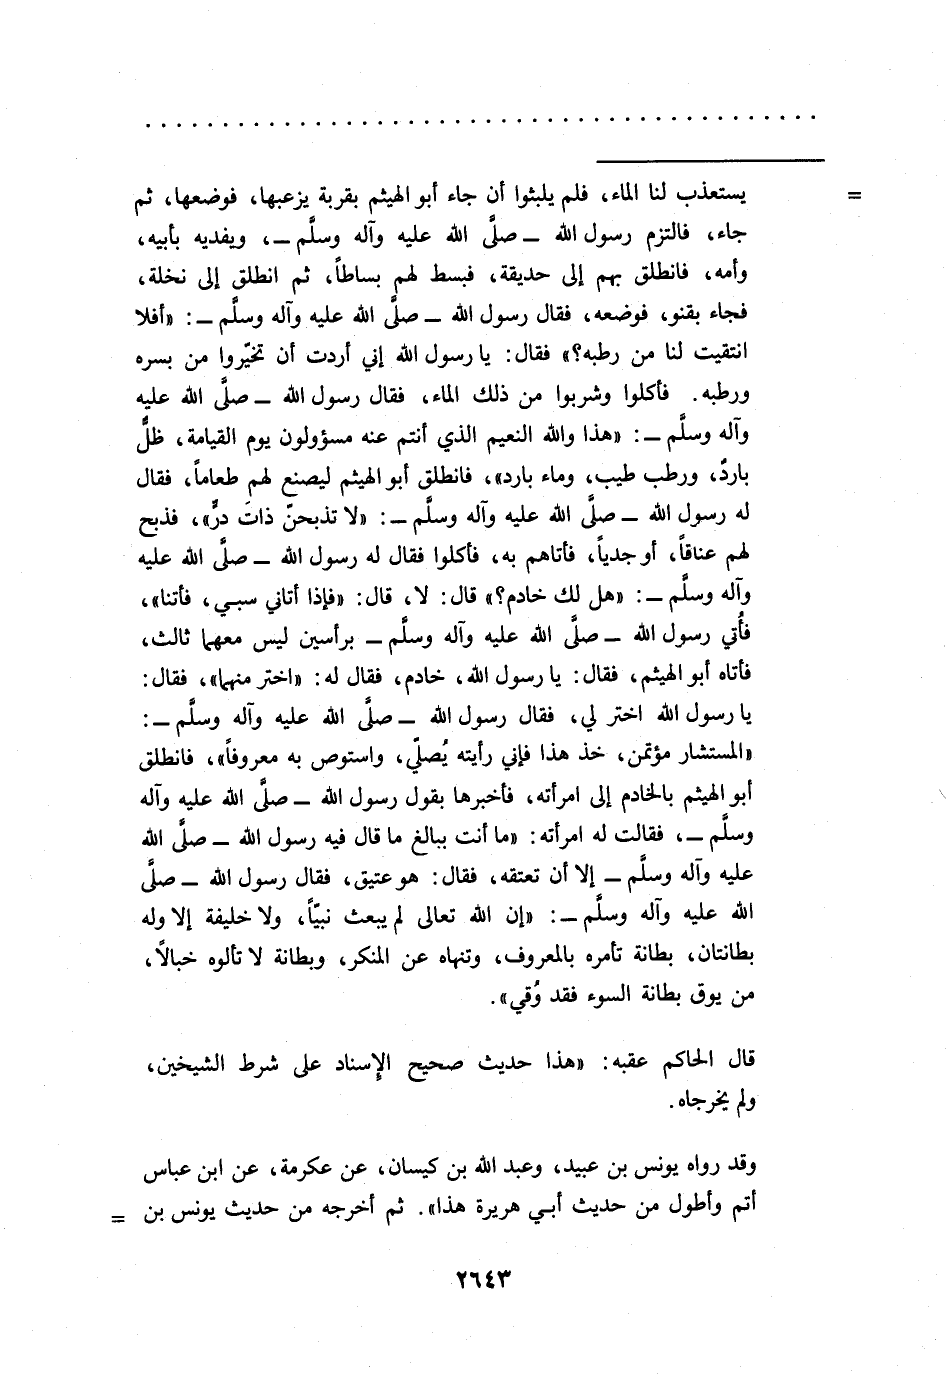 = يستعذب لنا الماء، فلم يلبثوا أن جاء أبو الهيثم بقربة يزعبها، فوضعها، ثم
جاء، فالتزم رسول الله ــ صلَّى الله عليه وآله وسلَّم ــ، ويفديه بأبيه،
وأمه، فانطلق بهم إلى حديقة، فبسط لهم بساطاً، ثم انطلق إلى نخلة،
فجاء بقنو، فوضعه، فقال رسول الله ــ صلَّى الله عليه وآله وسلَّم ــ: «أفلا
انتقيت لنا من رطبه؟» فقال: يا رسول الله إني أردت أن تخيّروا من بسره
ورطبه. فأكلوا وشربوا من ذلك الماء، فقال رسول الله ــ صلَّى الله عليه
وآله وسلَّم ــ: «هذا والله النعيم الذي أنتم عنه مسؤولون يوم القيامة، ظلٌّ
باردٌ، ورطب طيب، وماء بارد»، فانطلق أبو الهيثم ليصنع لهم طعاماً، فقال
له رسول الله ــ صلَّى الله عليه وآله وسلَّم ــ: «لا تذبحنّ ذاتَ درٍّ»، فذبح
لهم عناقاً، أو جدياً، فأتاهم به، فأكلوا فقال له رسول الله ــ صلَّى الله عليه
وآله وسلَّم ــ: «هل لك خادم؟» قال: لا، قال: «فإذا أتاني سبي، فأتنا»،
فأُتي رسول الله ــ صلَّى الله عليه وآله وسلَّم ــ برأسين ليس معهما ثالث،
فأتاه أبو الهيثم، فقال: يا رسول الله، خادم، فقال له: «اختر منهما»، فقال:
يا رسول الله اختر لي، فقال رسول الله ــ صلَّى الله عليه وآله وسلَّم ــ:
«المستشار مؤتمن، خذ هذا فإني رأيته يُصلّي، واستوص به معروفاً»، فانطلق
أبو الهيثم بالخادم إلى امرأته، فأخبرها بقول رسول الله ــ صلَّى الله عليه وآله
وسلَّم ــ، فقالت له امرأته: «ما أنت ببالغ ما قال فيه رسول الله ــ صلَّى الله
عليه وآله وسلَّم ــ إلا أن تعتقه، فقال: هو عتيق، فقال رسول الله ــ صلَّى
الله عليه وآله وسلَّم ــ: «إن الله تعالى لم يبعث نبيّاً، ولا خليفة إلا وله
بطانتان، بطانة تأمره بالمعروف، وتنهاه عن المنكر، وبطانة لا تألوه خبالاً،
من يوق بطانة السوء فقد وُقي».
قال الحاكم عقبه: «هذا حديث صحيح الإِسناد على شرط الشيخين،
ولم يخرجاه.
وقد رواه يونس بن عبيد، وعبد الله بن كيسان، عن عكرمة، عن ابن عباس
أتم وأطول من حديث أبي هريرة هذا». ثم أخرجه من حديث يونس بن =
٢٦٤٣